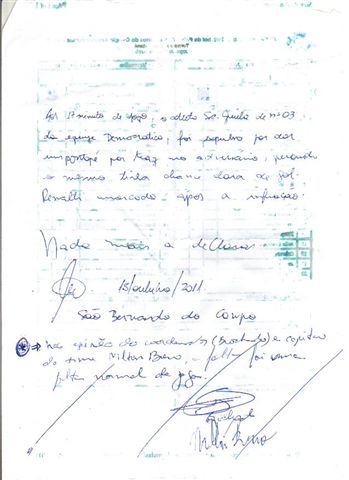 17 minutos de jogo, o atleta Sr. de nº 03
da equipe Democratico, foi expulso por dar
um pontapé por traz no adversário, quando
o mesmo tinha chance clara de gol.
Penalti marcado após a infração.
Nada mais a declarar
15/outubro/2011
São Bernardo do Campo
⇒ Na opinião do coordenador e capitão
do time Milton Bueno, a falta foi uma
falta normal de jogo.